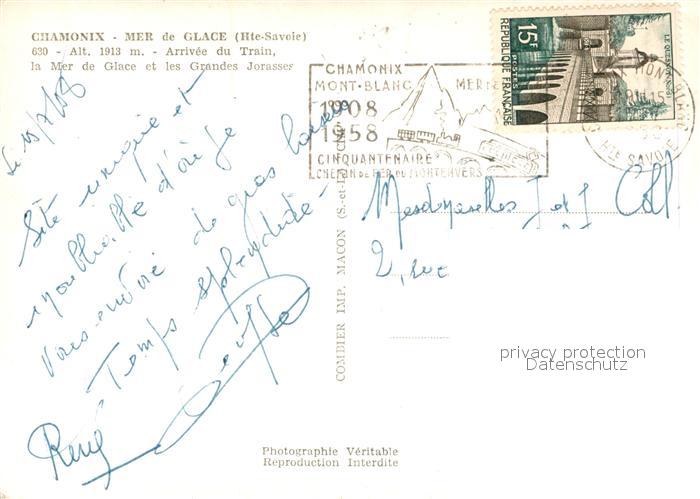 CHAMONIX - MER de GLACE (Hte-Savoie)
630 - Alt. 1913 m. - Arrivée du Train,
la Mer de Glace et les Grandes Jorasses
CHAMONIX
MONT-BLANC
MER DE
1908
1958
CINQUANTENAIRE
CHEMIN DE FER DU MONTENVERS
15F
REPUBLIQUE FRANÇAISE
POSTES
LE QUESNOY
Hte SAVOIE
Site unique et
inoubliable d'où je
vous envoie de gros baisers
Temps splendide
René
Mesdemoiselles J et J Coll
2, rue
COMBIER IMP. MACON (S.-et-L.)
privacy protection
Datenschutz
Photographie Véritable
Reproduction Interdite